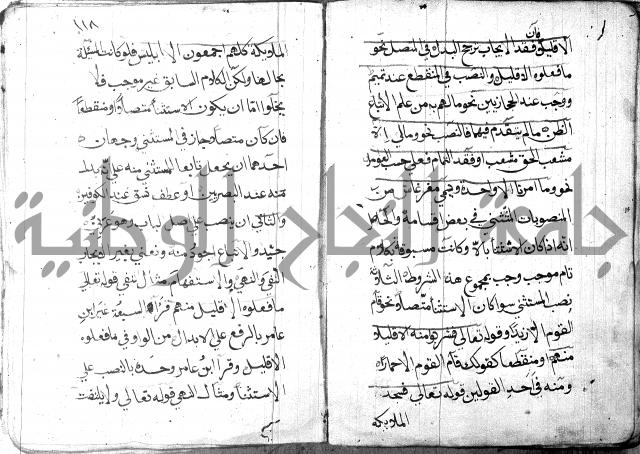 فان
الا قليلا وفقد الايجاب ترجح البدل في المتصل نحو
ما فعلوه الا قليل والنصب في المنقطع عند تميم
ووجب عند الحجازيين نحو ما لهم به من علم الا اتباع
الظن ما لم يتقدم فيهما فالنصب نحو ومالي الا
مشعب الحق مشعب او فقد التمام فعلى حسب العوامل
نحو وما امرنا الا واحدة ويسمى مفرغا ش من
المنصوبات المستثنى في بعض اقسامه والحاصل
انه اذا كان الاستثنا بالا وكانت مسبوقة بكلام
تام موجب وجب بمجموع هذه الشروط الثلاثة
نصب المستثنى سوا كان الاستثنا متصلا نحو قام
القوم الا زيدا وقوله تعالى فشربوا منه الا قليلا
منهم او منقطعا كقولك قام القوم الا حمارا
ومنه في احد القولين قوله تعالى فسجد
الملايكة
١١٨
الملايكة كلهم اجمعون الا ابليس فلو كانت المسئلة
بحالها ولكن الكلام السابق غير موجب فلا
يخلوا اما ان يكون الاستثنا متصلا او منقطعا
فان كان متصلا جاز في المستثنى وجهان
احدهما ان يجعل تابعا للمستثنى منه على انه بدل
منه عند البصريين او عطف نسق عند الكوفيين
والثاني ان ينصب على اصل الباب وهو عربي
جيد والاتباع اجود منه ونعني بغير الايجاب
النفي والنهي والاستفهام مثال النفي قوله تعالى
ما فعلوه الا قليل منهم قرا السبعة غير ابن
عامر بالرفع على الابدال من الواو في ما فعلوه
الا قليل وقرا ابن عامر وحده بالنصب على
الاستثنا ومثال النهي قوله تعالى ولا يلتفت
جامعة النجاح الوطنية